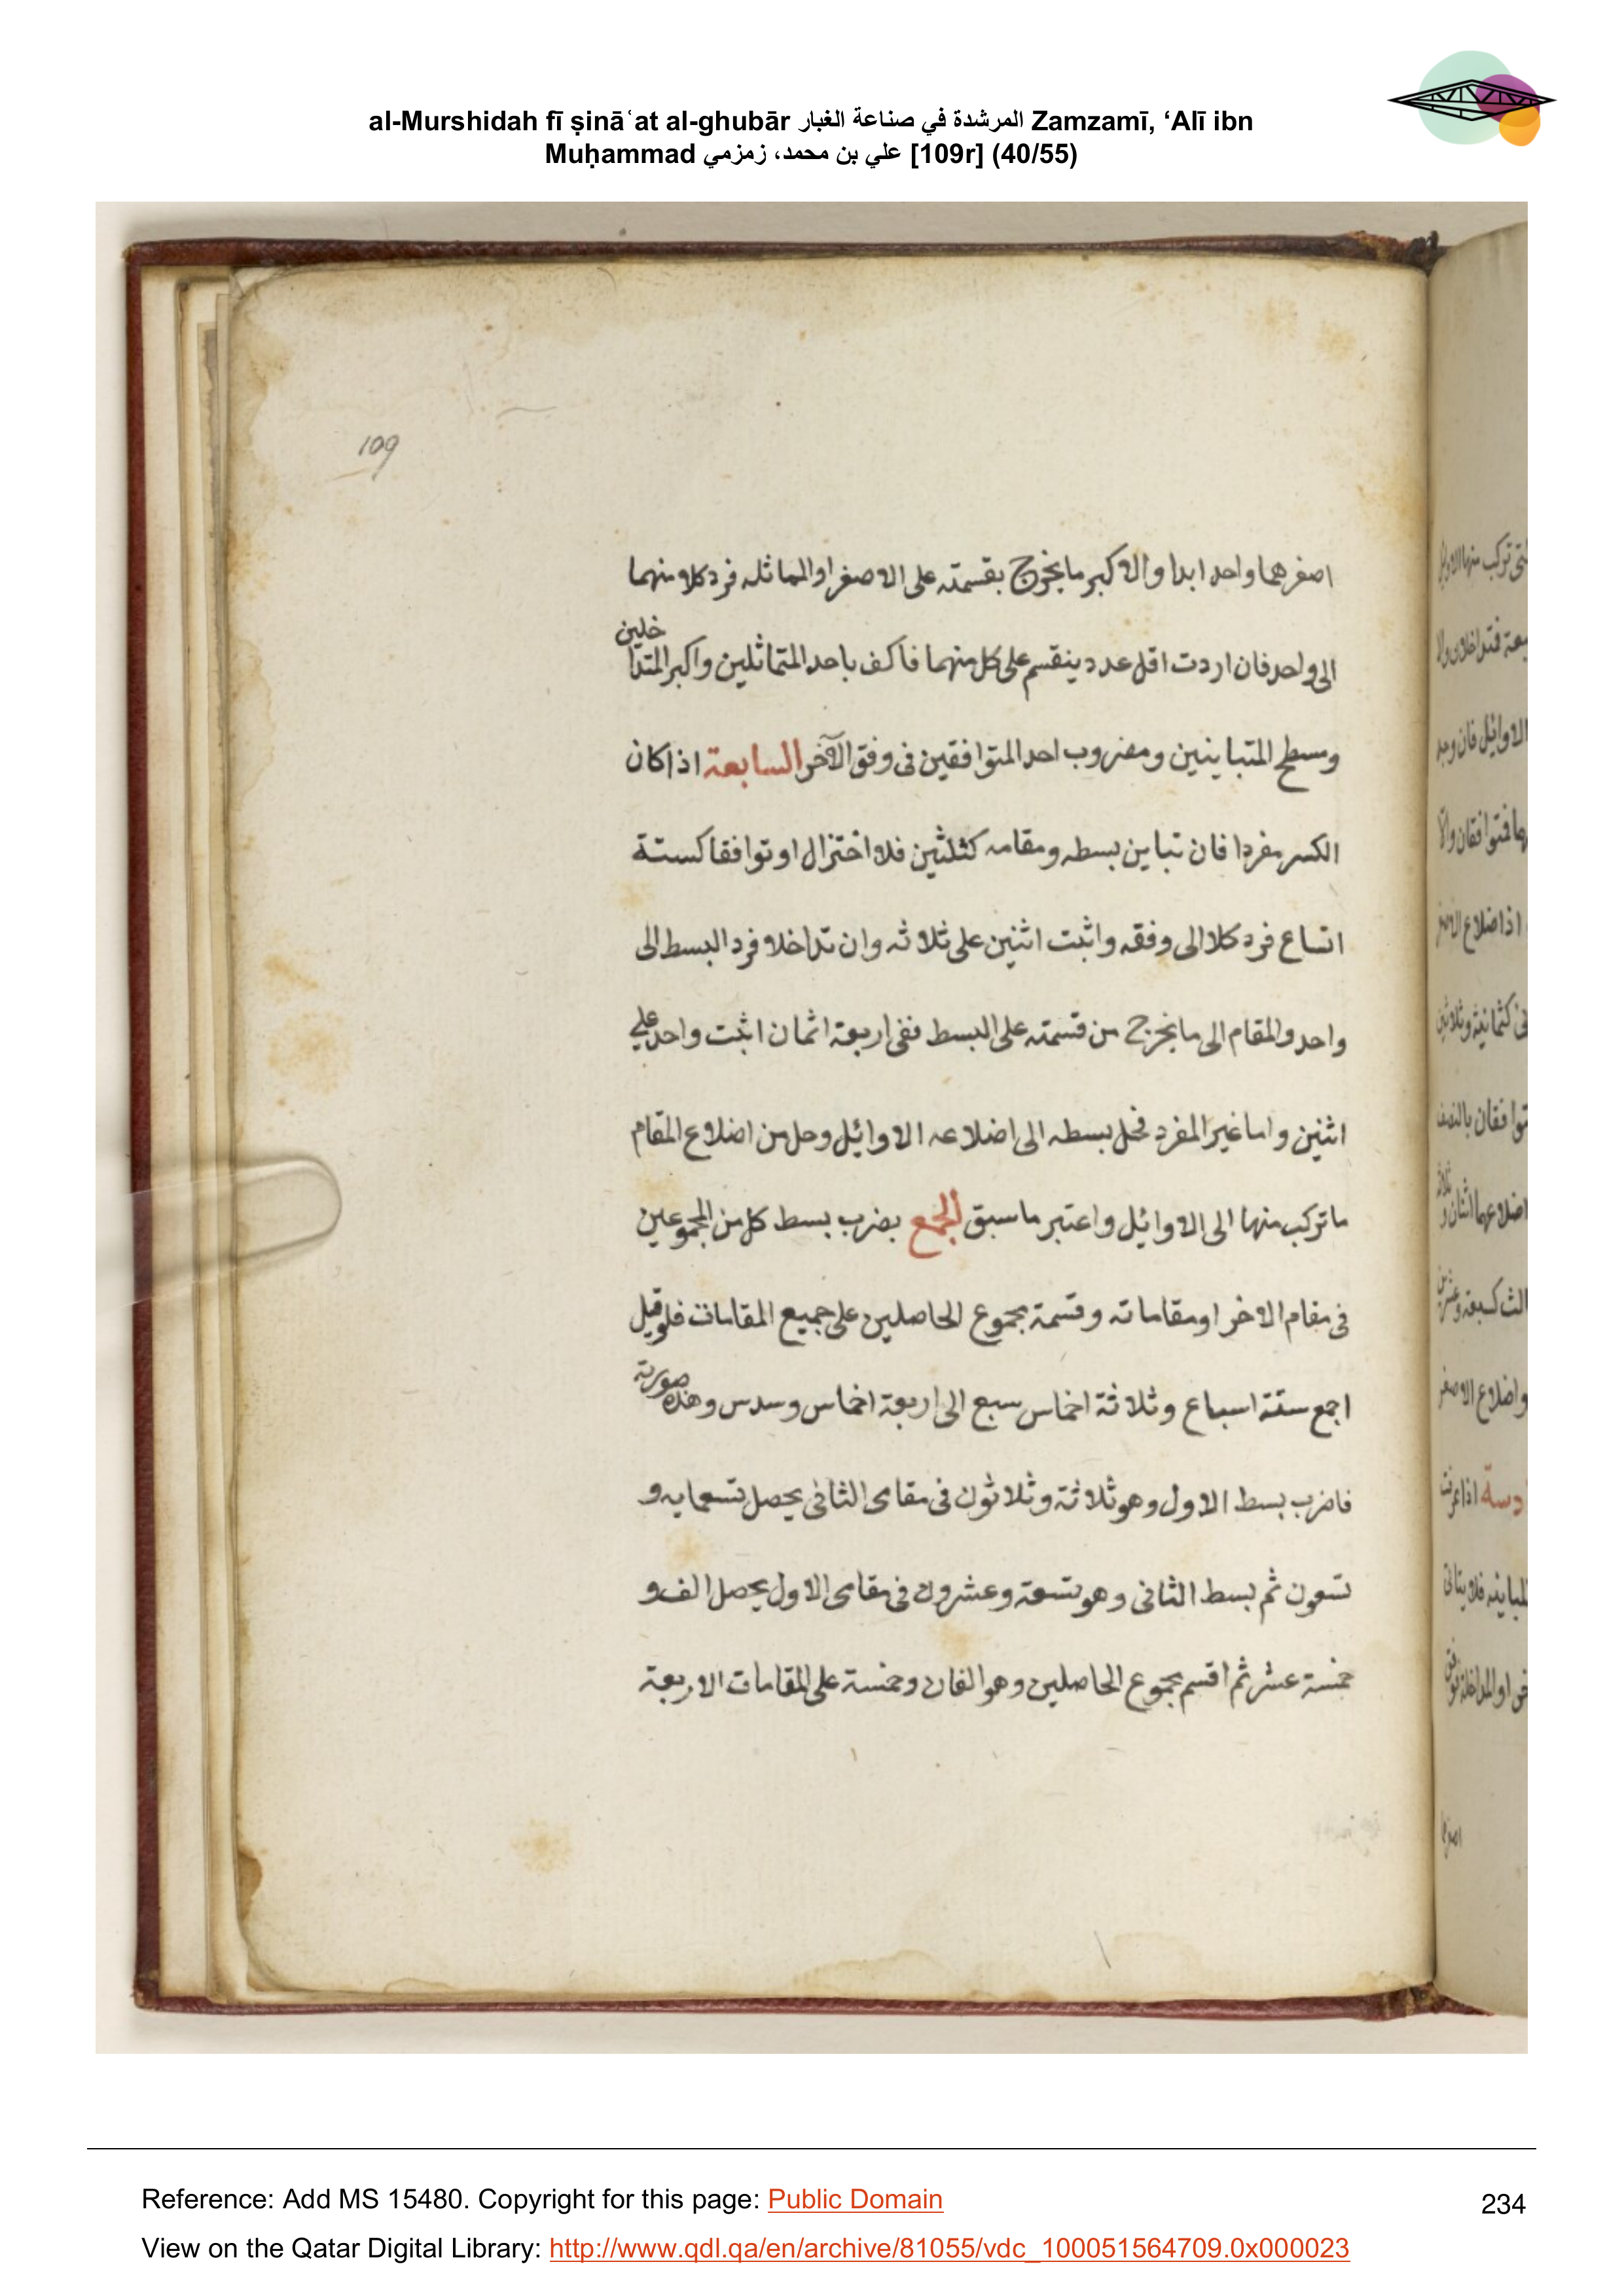 al-Murshidah fī ṣināʿat al-ghubār المرشدة في صناعة الغبار Zamzamī, ‘Alī ibn
Muḥammad علي بن محمد، زمزمي [109r] (40/55)
109
اصغرهما واحد ابدا والاكبر ما يخرج بقسمته على الاصغر او المماثله فرد كلا منهما
الى واحد فان اردت اقل عدد ينقسم على كل منهما فاكف باحد المتماثلين واكبر المتداخلين
ومسطح المتباينين ومضروب احد المتوافقين فى وفق الآخر السابعة اذا كان
الكسر مفردا فان تباين بسطه ومقامه كثلثين فلا اختزال او توافقا كستة
اتساع فرد كلا الى وفقه واثبت اثنين على ثلاثه وان تداخلا فرد البسط الى
واحد والمقام الى ما يخرج من قسمته على البسط ففى اربعة اثمان اثبت واحد على
اثنين واما غير المفرد فحل بسطه الى اضلاعه الاوائل وحل من اضلاع المقام
ما تركب منها الى الاوائل واعتبر ما سبق الجمع بضرب بسط كل من المجموعين
فى مقام الاخر او مقاماته وقسمة مجموع الحاصلين على جميع المقامات فلو قيل
اجمع ستة اسباع وثلاثة اخماس سبع الى اربعة اخماس وسدس وهذه صورته
فاضرب بسط الاول وهو ثلاثة وثلاثون فى مقامى الثانى يحصل تسعمايه و
تسعون ثم بسط الثانى وهو تسعة وعشرون فى مقامى الاول يحصل الف و
خمسة عشر ثم اقسم مجموع الحاصلين وهو الفان وخمسة على المقامات الاربعة
Reference: Add MS 15480. Copyright for this page: Public Domain
234
View on the Qatar Digital Library: http://www.qdl.qa/en/archive/81055/vdc_100051564709.0x000023